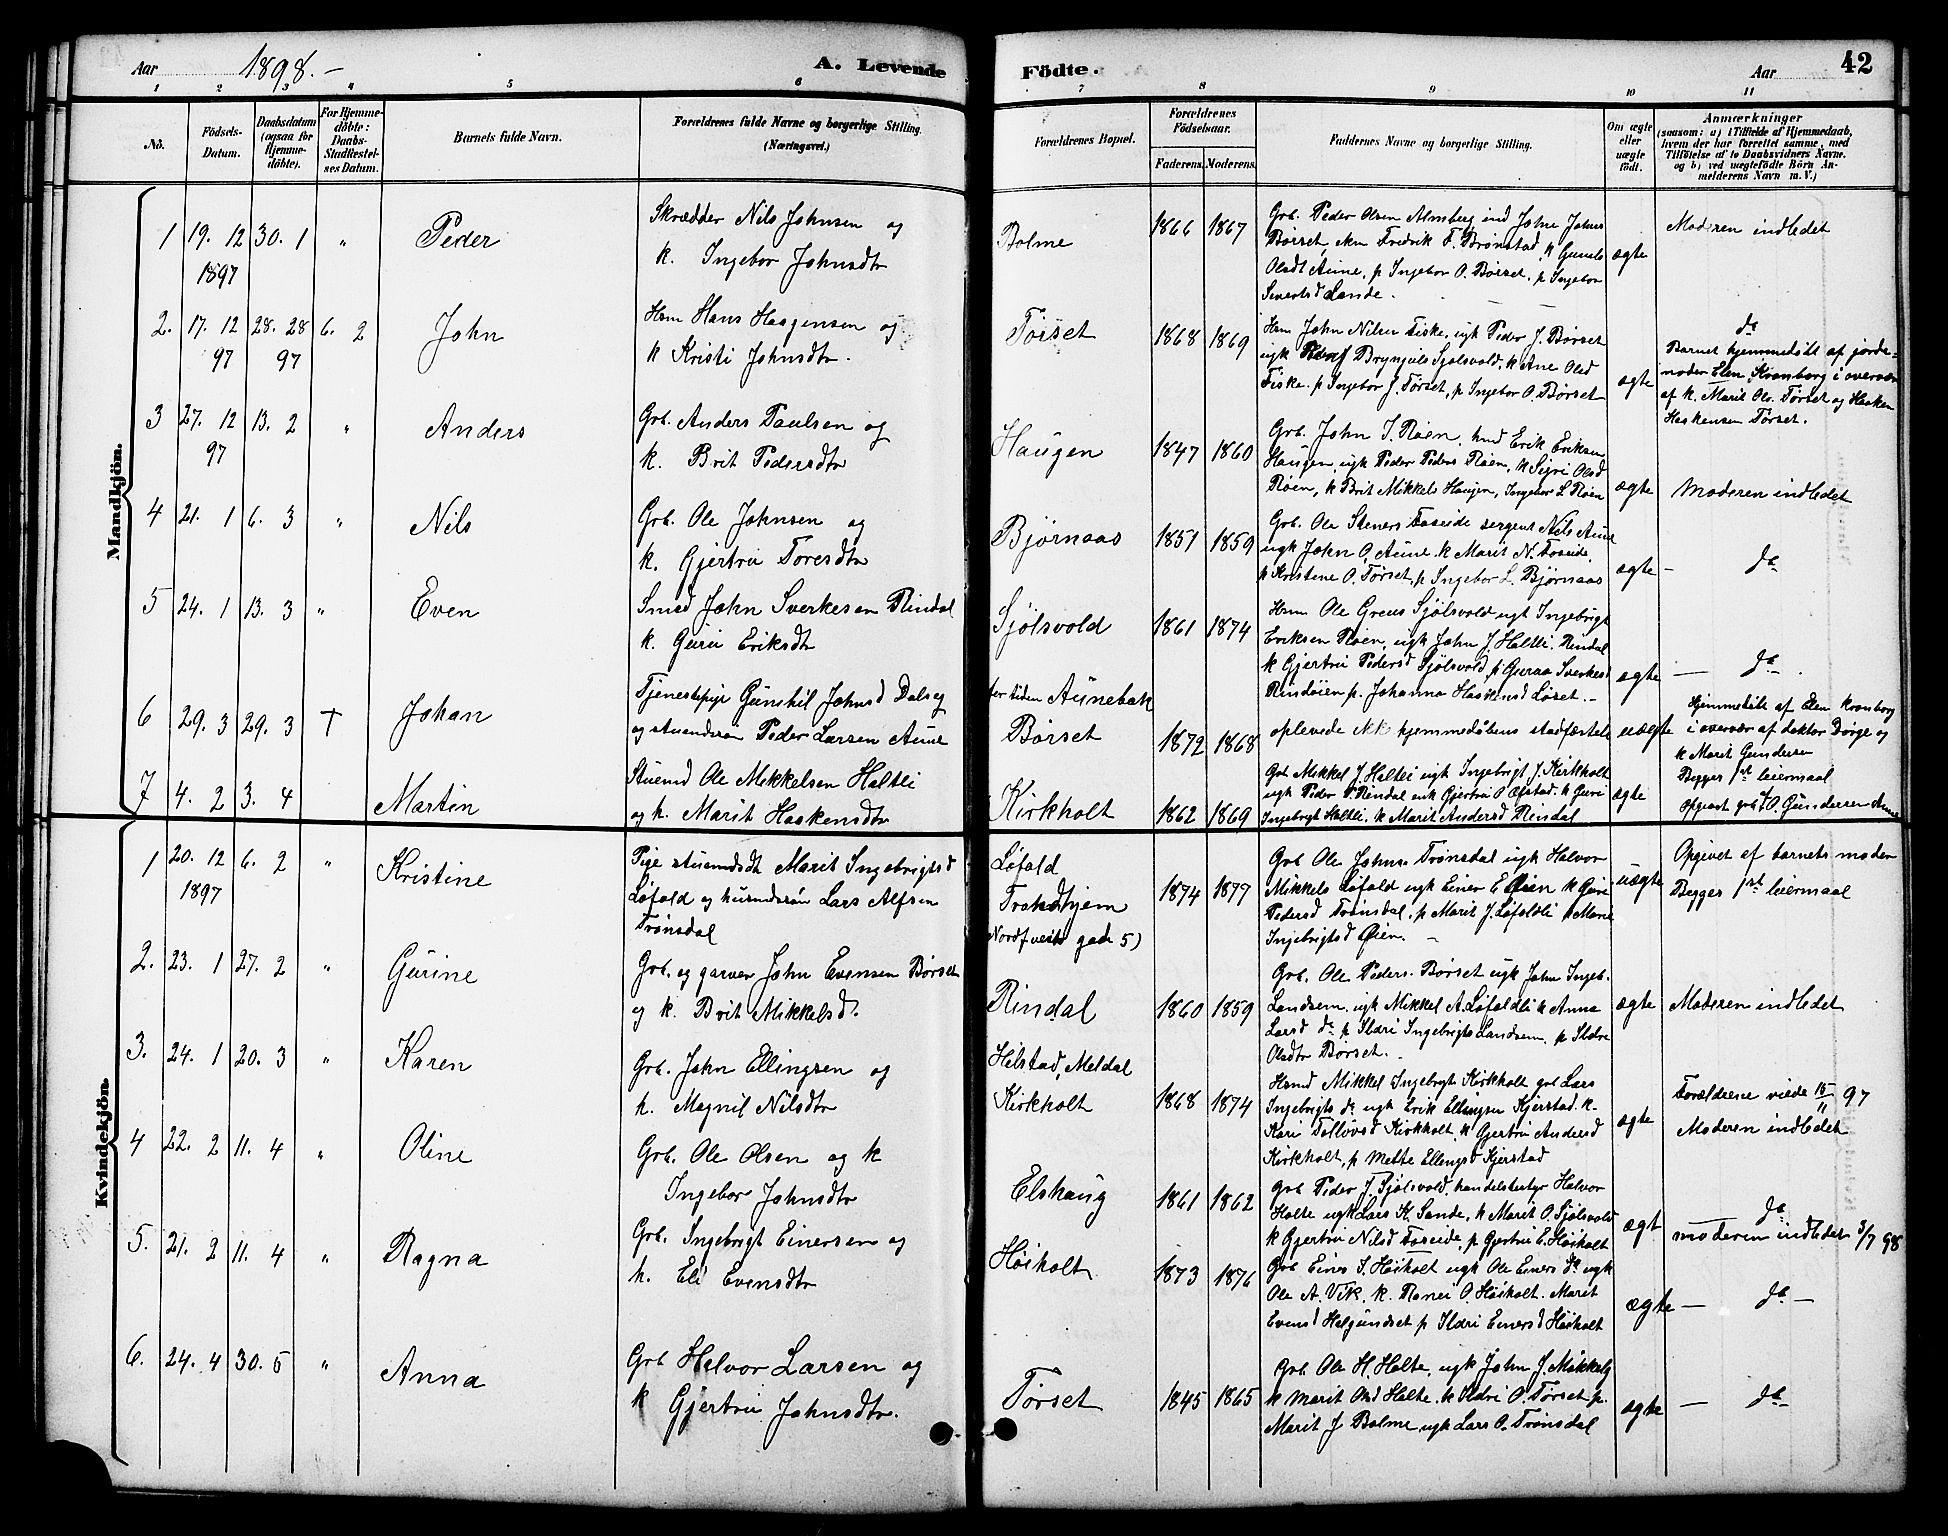 Aar 1898. –
A. Levende
Födte.
Aar
42
1 2 3 4 5 6 7 8 9 10 11
No.
Födsels-Datum.
Daabsdatum (ogsaa for Hjemmedöbte).
For Hjemmedöbte: Daabs-Stadfestelses Datum.
Barnets fulde Navn.
Forældrenes fulde Navne og borgerlige Stilling. (Næringsvei.)
Forældrenes Bopæl.
Forældrenes Födselsaar.
Faderens. Moderens.
Faddernes Navne og borgerlige Stilling.
Om ægte eller uægte födt.
Anmærkninger
(saasom: a) i Tilfælde af Hjemmedaab, hvem der har forrettet samme, med Tilföielse af to Daabsvidners Navne. og b) ved uægtefödte Börn Anmelderens Navn m. V.)
Mandkjön.
1 19. 12 30. 1 " Peder
1897
Skrædder Nils Johnsen og
k. Ingebor Johnsdtr
Bolme 1866 1867
Grb. Peder Olsen Almberg ind John Johns
Børset, Fredrik F. Brønstad, k Gunels
Olsdt Aune, p Ingebor O. Børset, p Ingebor
Sivertsd Lande.
ægte
Moderen indledet
2. 17. 12 28. 28 6. 2 John
97 97
Hsm Hans Haagensen og
k Kristi Johnsdtr.
Tørset 1868 1869
Hsm John Nilsen Fiske, ugk Peder J. Børset
ugk Bryngels Sjølsvold, k Ane Olsd
Fiske. p Ingebor J. Tørset, p Ingebor O. Børset
ægte
do
Barnet hjemmedöbt af jorde=
moder Elen Kronborg i overvær
af k. Marit Ols. Tørset og Haaken
Haakensen Tørset.
3 27. 12 13. 2 " Anders
97
Grb. Anders Paulsen og
k. Brit Pedersdtr
Haugen 1847 1860
Grb. John I. Røen, hmd Erik Eriksen
Haugen, ugk Peder Peders Røen, k Sigri Olsd
Røen, k Brit Mikkels Haugen, Ingebor L Røen
ægte
Moderen indledet
4 21. 1 6. 3 " Nils
Grb. Ole Johnsen og
k. Gjertru Toresdtr
Bjørnaas 1851 1859
Grb. Ole Steners Foseide sergent Nils Aune
ugk John O. Aune. k Marit N. Foseide
p Kristine O. Tørset, p Ingebor L. Bjørnaas
ægte – do
5 24. 1 13. 3 " Even
Smed John Sverkesen Rindal
k. Guru Eriksdtr
Sjølsvold 1861 1874
Hsm Ole Sjölsvold ugk Ingebrigt
Eriksen Røen, ugk John J. Haltli. Rindal
k Gjertru Pedersd Sjölsvold, p Guraa Sverkesd
Rindøien p. Johanna Haakensd Løset. –
ægte – do
6 29. 3 29. 3 † Johan
Tjenestepige Gunhil Johnsd Dalseg
og stuendssøn Peder Larsen Aune
for tiden Aunebak
Børset 1872 1868
oplevede ikke hjemmedåbens stadfæstelse
uægte
Hjemmedöbt af Elen Kronborg
i overvær af doktor Dørge og
k Marit Gundersen
Begges 1st leiermaal
Opgivet grb. O. Gundersen Aune
7 4. 2 3. 4 Martin
Stuemd Ole Mikkelsen Haltli
og k. Marit Haakensdtr
Kirkholt 1862 1869
Grb Mikkel J. Haltli ugk Ingebrigt J. Kirkholt
ugk Peder P. Rindal enk Gjertru O. k Guri
Ingebrigt Haltli. k Marit Andersd Rindal
ægte
Kvindekjön.
1 20. 12 6. 2 " Kristine
1897
Pige stuemdsdt Marit Ingebrigtsd
Løfald og husmdssøn Lars Alfsen
Trønsdal
Løfald
Trondhjem
Nordre gade 5)
1874 1877
Grb Ole Johns. Trønsdal ugk Halvor
Mikkels Løfald ugk Einer E Øien k Guri
Pedersd Trønsdal, p Marit J. Løfaldli p Marie
Ingebrigtsd Øien. –
uægte
Opgivet af barnets moder
Begges 1st leiermaal
2. 23. 1 27. 2 " Gurine
Grb. og garver John Evensen Børset
og k. Brit Mikkelsd.
Rindal 1860 1859
Grb. Ole Peders. Børset ugk John Ingeb.
Landsem, ugk Mikkel A. Løfaldli k Anna
Larsd do p Ildri Ingebrigts Landsem, p Ildri
Olsdtr Børset. –
ægte
Moderen indledet
3. 24. 1 20. 3 " Karen
Grb. John Ellingsen og
k. Magnil Nilsdtr
Hilstad, Meldal
Kirkholt 1868 1874
Hsmd Mikkel Ingebrigts Kirkholt grb Lars
Ingebrigts do ugk Erik Ellingsen Kjerstad. k.
Kari Tollovsd Kirkholt, k Gjertru Andersd
Kirkholt, p Mette Ellingsd Kjerstad
ægte
Forældrene viede 15/11 97
Moderen indledet
4 22. 2 11. 4 " Oline
Grb. Ole Olsen og k
Ingebor Johnsdtr
Elshaug 1861 1862
Grb Peder J. Sjølsvold, handelsbestyr Halvor
Holte ugk Lars K. Sande, k Marit O. Sjølsvold
k Gjertru Nilsd Foseide, p Gjertru E. Høiholt
ægt
do
moderen indledet 3/7 98
5. 21. 2 11. 4 " Ragna
Grb. Ingebrigt Einersen og
k. Eli Evensdtr
Høiholt 1873 1876
Grb Einer I. Høiholt ugk Ole Einers do ugk
Ole A. Vik. k. Ranei O. Høiholt. Marit
Evensd Helgundset p Ildri Einersd Høiholt
ægte – do –
6. 24. 4 30. 5 " Anna
Grb Halvor Larsen og
k Gjertru Johnsdtr.
Tørset 1845 1865
Grb Ole H. Holte, ugk John J. Mikkels
k Marit Olsd Holte. k Ildri O. Tørset p.
Marit J Bolme ugk Lars O. Trønsdal
ægte – do